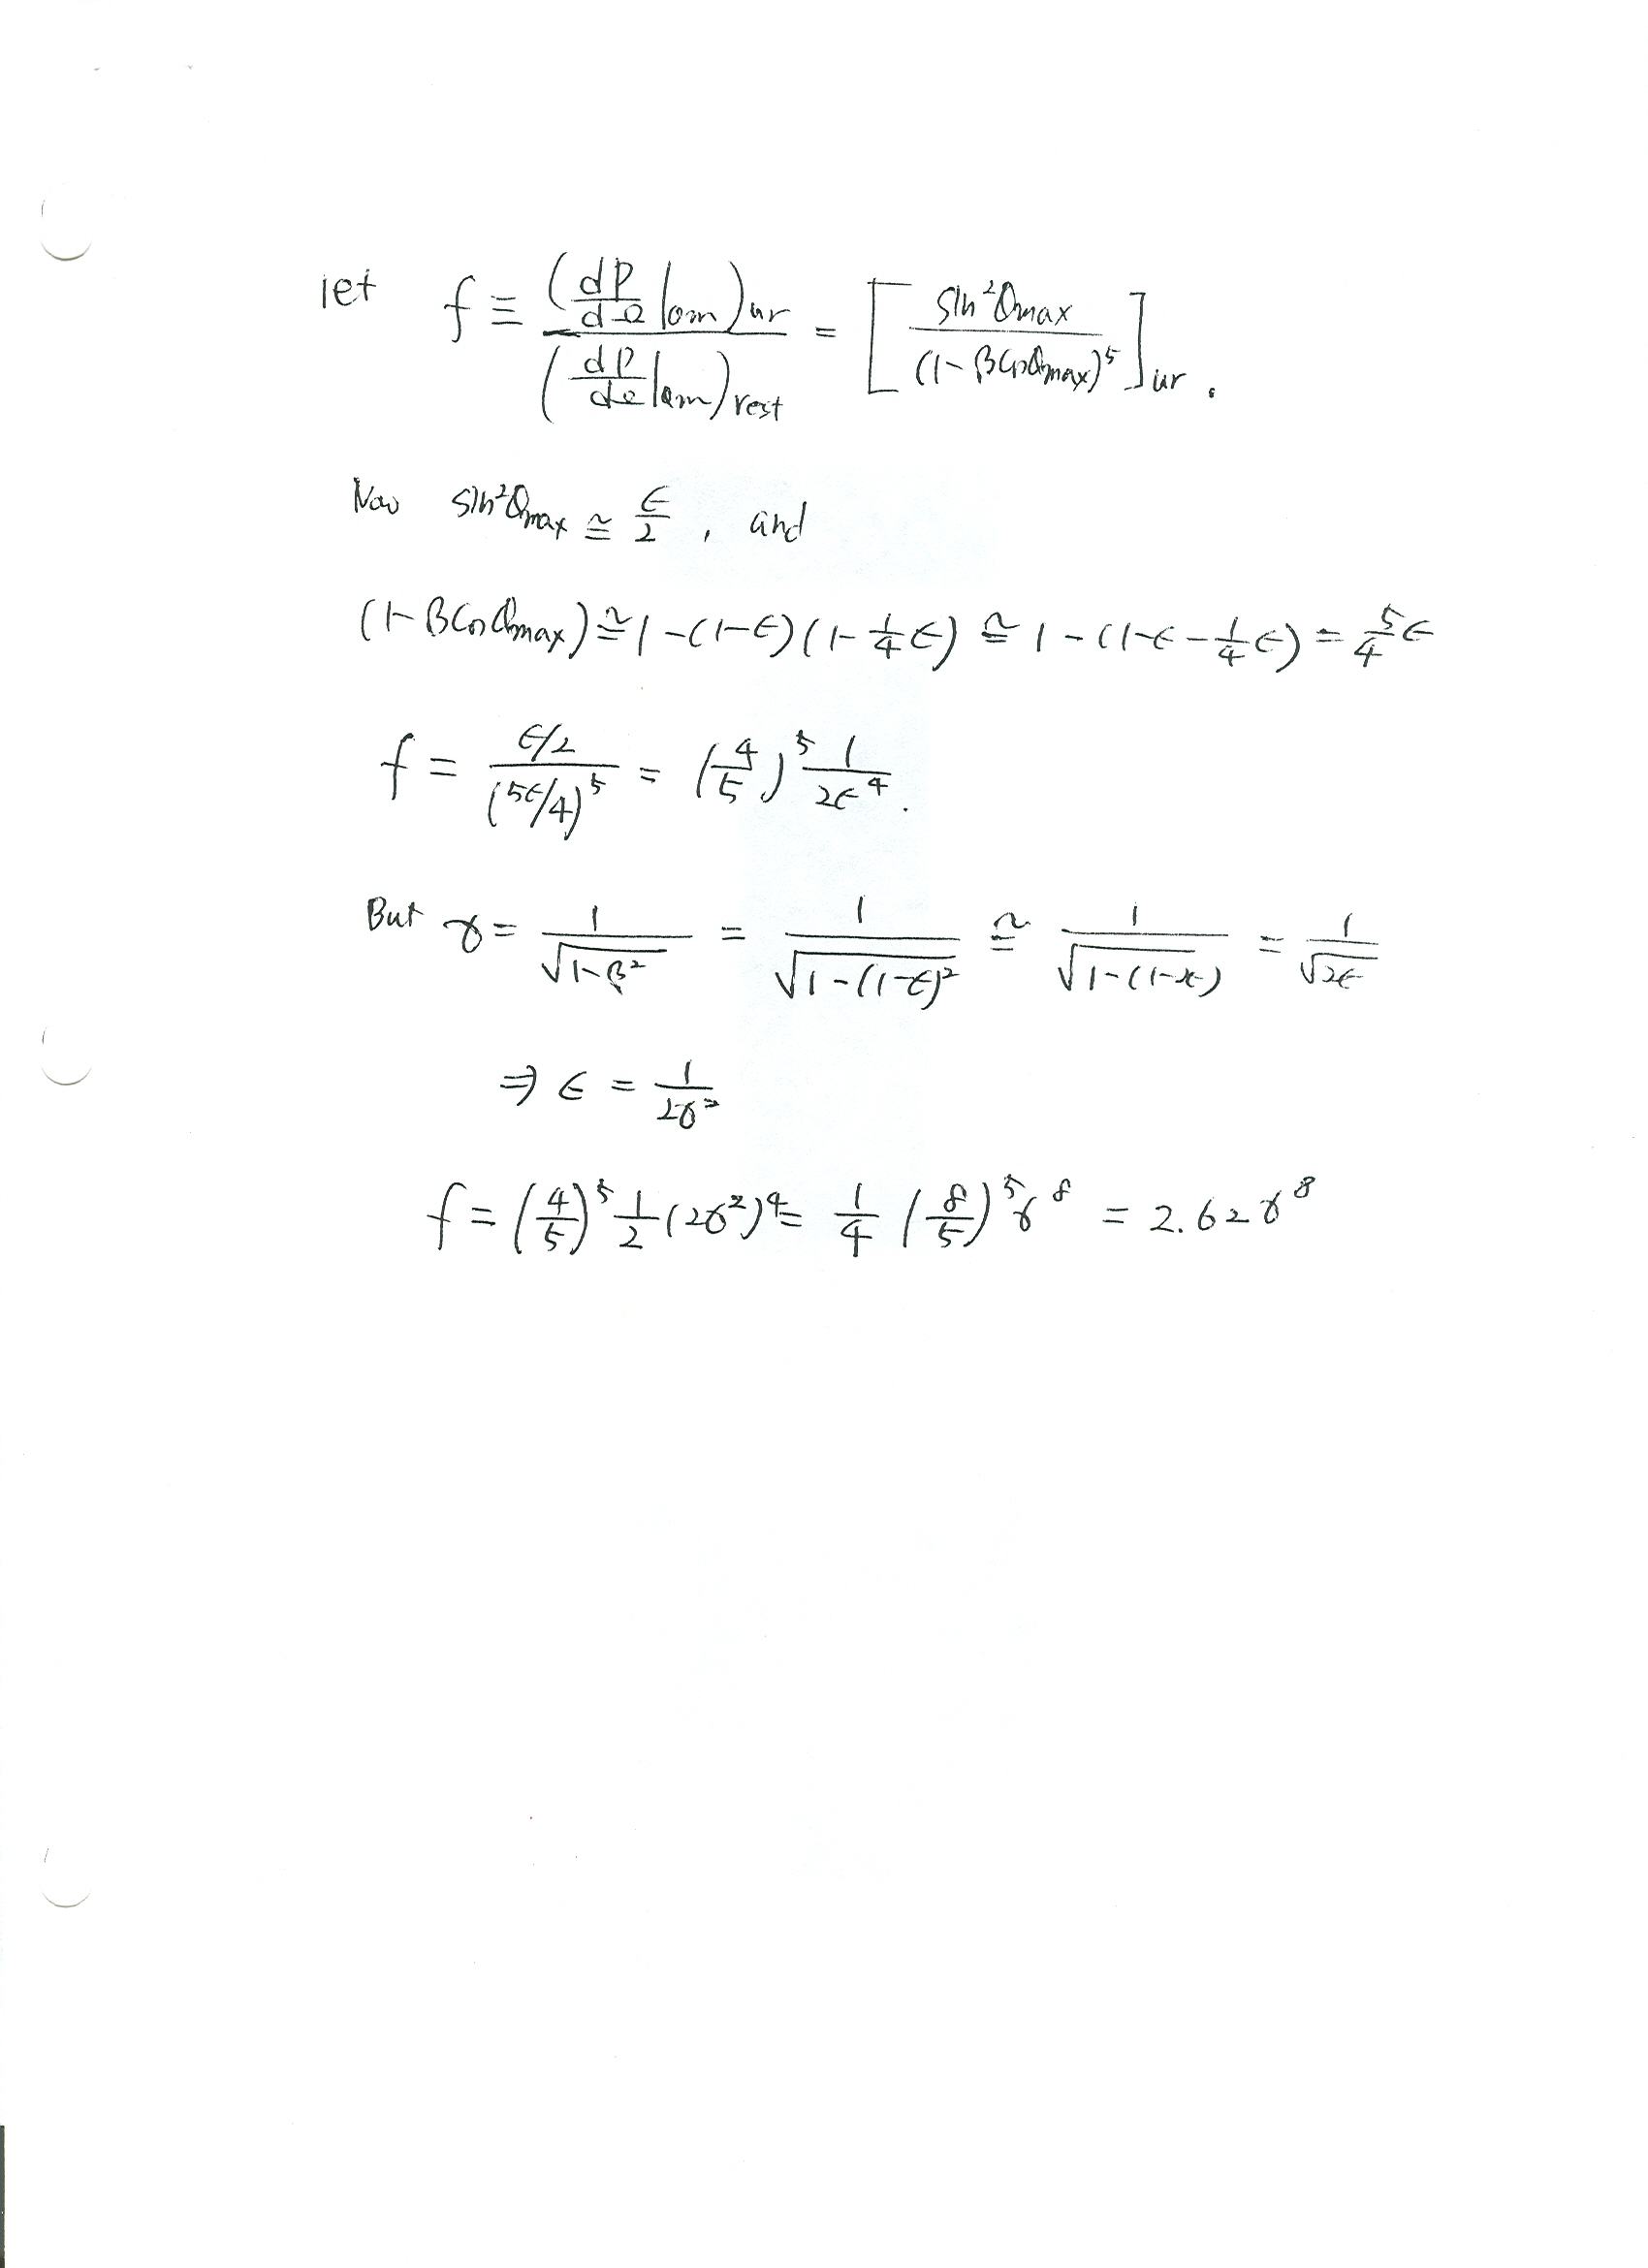 let f ≡ (dP/dΩ|θm)ur / (dP/dΩ|θm)rest = [ sin²θmax / (1-βcosθmax)⁵ ]ur .
Now sin²θmax ≅ ϵ/2 , and
(1-βcosθmax) ≅ 1-(1-ϵ)(1-1/4 ϵ) ≅ 1-(1-ϵ-1/4 ϵ) = 5/4 ϵ
f = (ϵ/2) / (5ϵ/4)⁵ = (4/5)⁵ 1/2ϵ⁴ .
But γ = 1/√(1-β²) = 1/√(1-(1-ϵ)²) ≅ 1/√(1-(1-2ϵ)) = 1/√2ϵ
⇒ ϵ = 1/2γ²
f = (4/5)⁵ 1/2 (2γ²)⁴ = 1/4 (8/5)⁵ γ⁸ = 2.62γ⁸